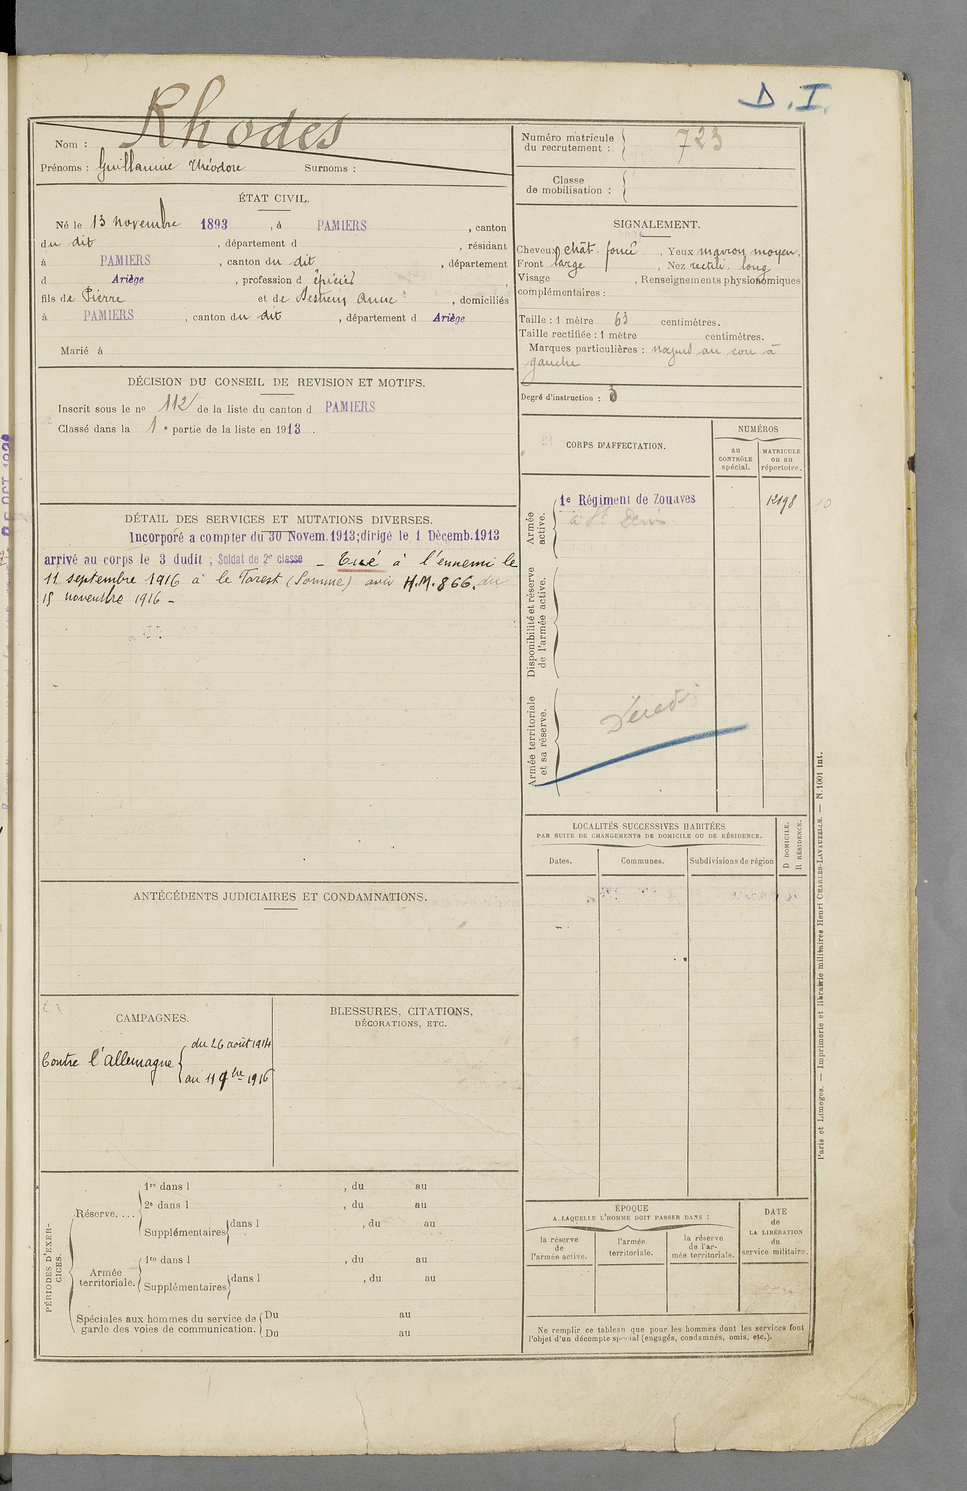 D. I.
Rhodes
Nom :
Prénoms : Guillaume Théodore Surnoms :
Numéro matricule du recrutement : 723
Classe de mobilisation :
ÉTAT CIVIL.
Né le 13 novembre 1893, à PAMIERS, canton
du dit, département d , résidant
à PAMIERS, canton du dit, département
d Ariège, profession d épicier,
fils de Pierre et de Anne, domiciliés
à PAMIERS, canton du dit, département d Ariège
Marié à
SIGNALEMENT.
Cheveux chât. foncé, Yeux marron moyen,
Front large, Nez rectili. long
Visage , Renseignements physionomiques
complémentaires :
Taille : 1 mètre 63 centimètres.
Taille rectifiée : 1 mètre centimètres.
Marques particulières : au cou à
gauche
Degré d'instruction : 3
DÉCISION DU CONSEIL DE REVISION ET MOTIFS.
Inscrit sous le nº 112 de la liste du canton d PAMIERS
Classé dans la 1e partie de la liste en 1913.
CORPS D'AFFECTATION.
NUMÉROS
au CONTRÔLE spécial.
MATRICULE ou au répertoire.
Armée active.
1e Régiment de Zouaves 12198
à St Denis
Disponibilité et réserve de l'armée active.
Armée territoriale et sa réserve.
Décédé
DÉTAIL DES SERVICES ET MUTATIONS DIVERSES.
Incorporé a compter du 30 Novem.1913;dirigé le 1 Décemb.1913
arrivé au corps le 3 dudit ; Soldat de 2e classe _ Tué à l'ennemi le
11 septembre 1916 à le Forest (Somme) avis H.M. 866. du
15 novembre 1916 _
LOCALITÉS SUCCESSIVES HABITÉES
PAR SUITE DE CHANGEMENTS DE DOMICILE OU DE RÉSIDENCE.
Dates.
Communes.
Subdivisions de région
D DOMICILE.
R RÉSIDENCE.
ANTÉCÉDENTS JUDICIAIRES ET CONDAMNATIONS.
CAMPAGNES.
Contre l'allemagne { du 26 août 1914
au 11 9bre 1916
BLESSURES, CITATIONS,
DÉCORATIONS, ETC.
PÉRIODES D'EXERCICES.
Réserve....
1re dans l , du au
2e dans l , du au
Supplémentaires dans l , du au
Armée territoriale.
1re dans l , du au
Supplémentaires dans l , du au
Spéciales aux hommes du service de garde des voies de communication.
Du au
Du au
ÉPOQUE
A LAQUELLE L'HOMME DOIT PASSER DANS :
la réserve de l'armée active.
l'armée territoriale.
la réserve de l'armée territoriale.
DATE de LA LIBÉRATION du service militaire.
Ne remplir ce tableau que pour les hommes dont les services font
l'objet d'un décompte spécial (engagés, condamnés, omis, etc.).
Paris et Limoges. — Imprimerie et librairie militaires Henri CHARLES-LAVAUZELLE. — N.1001 int.